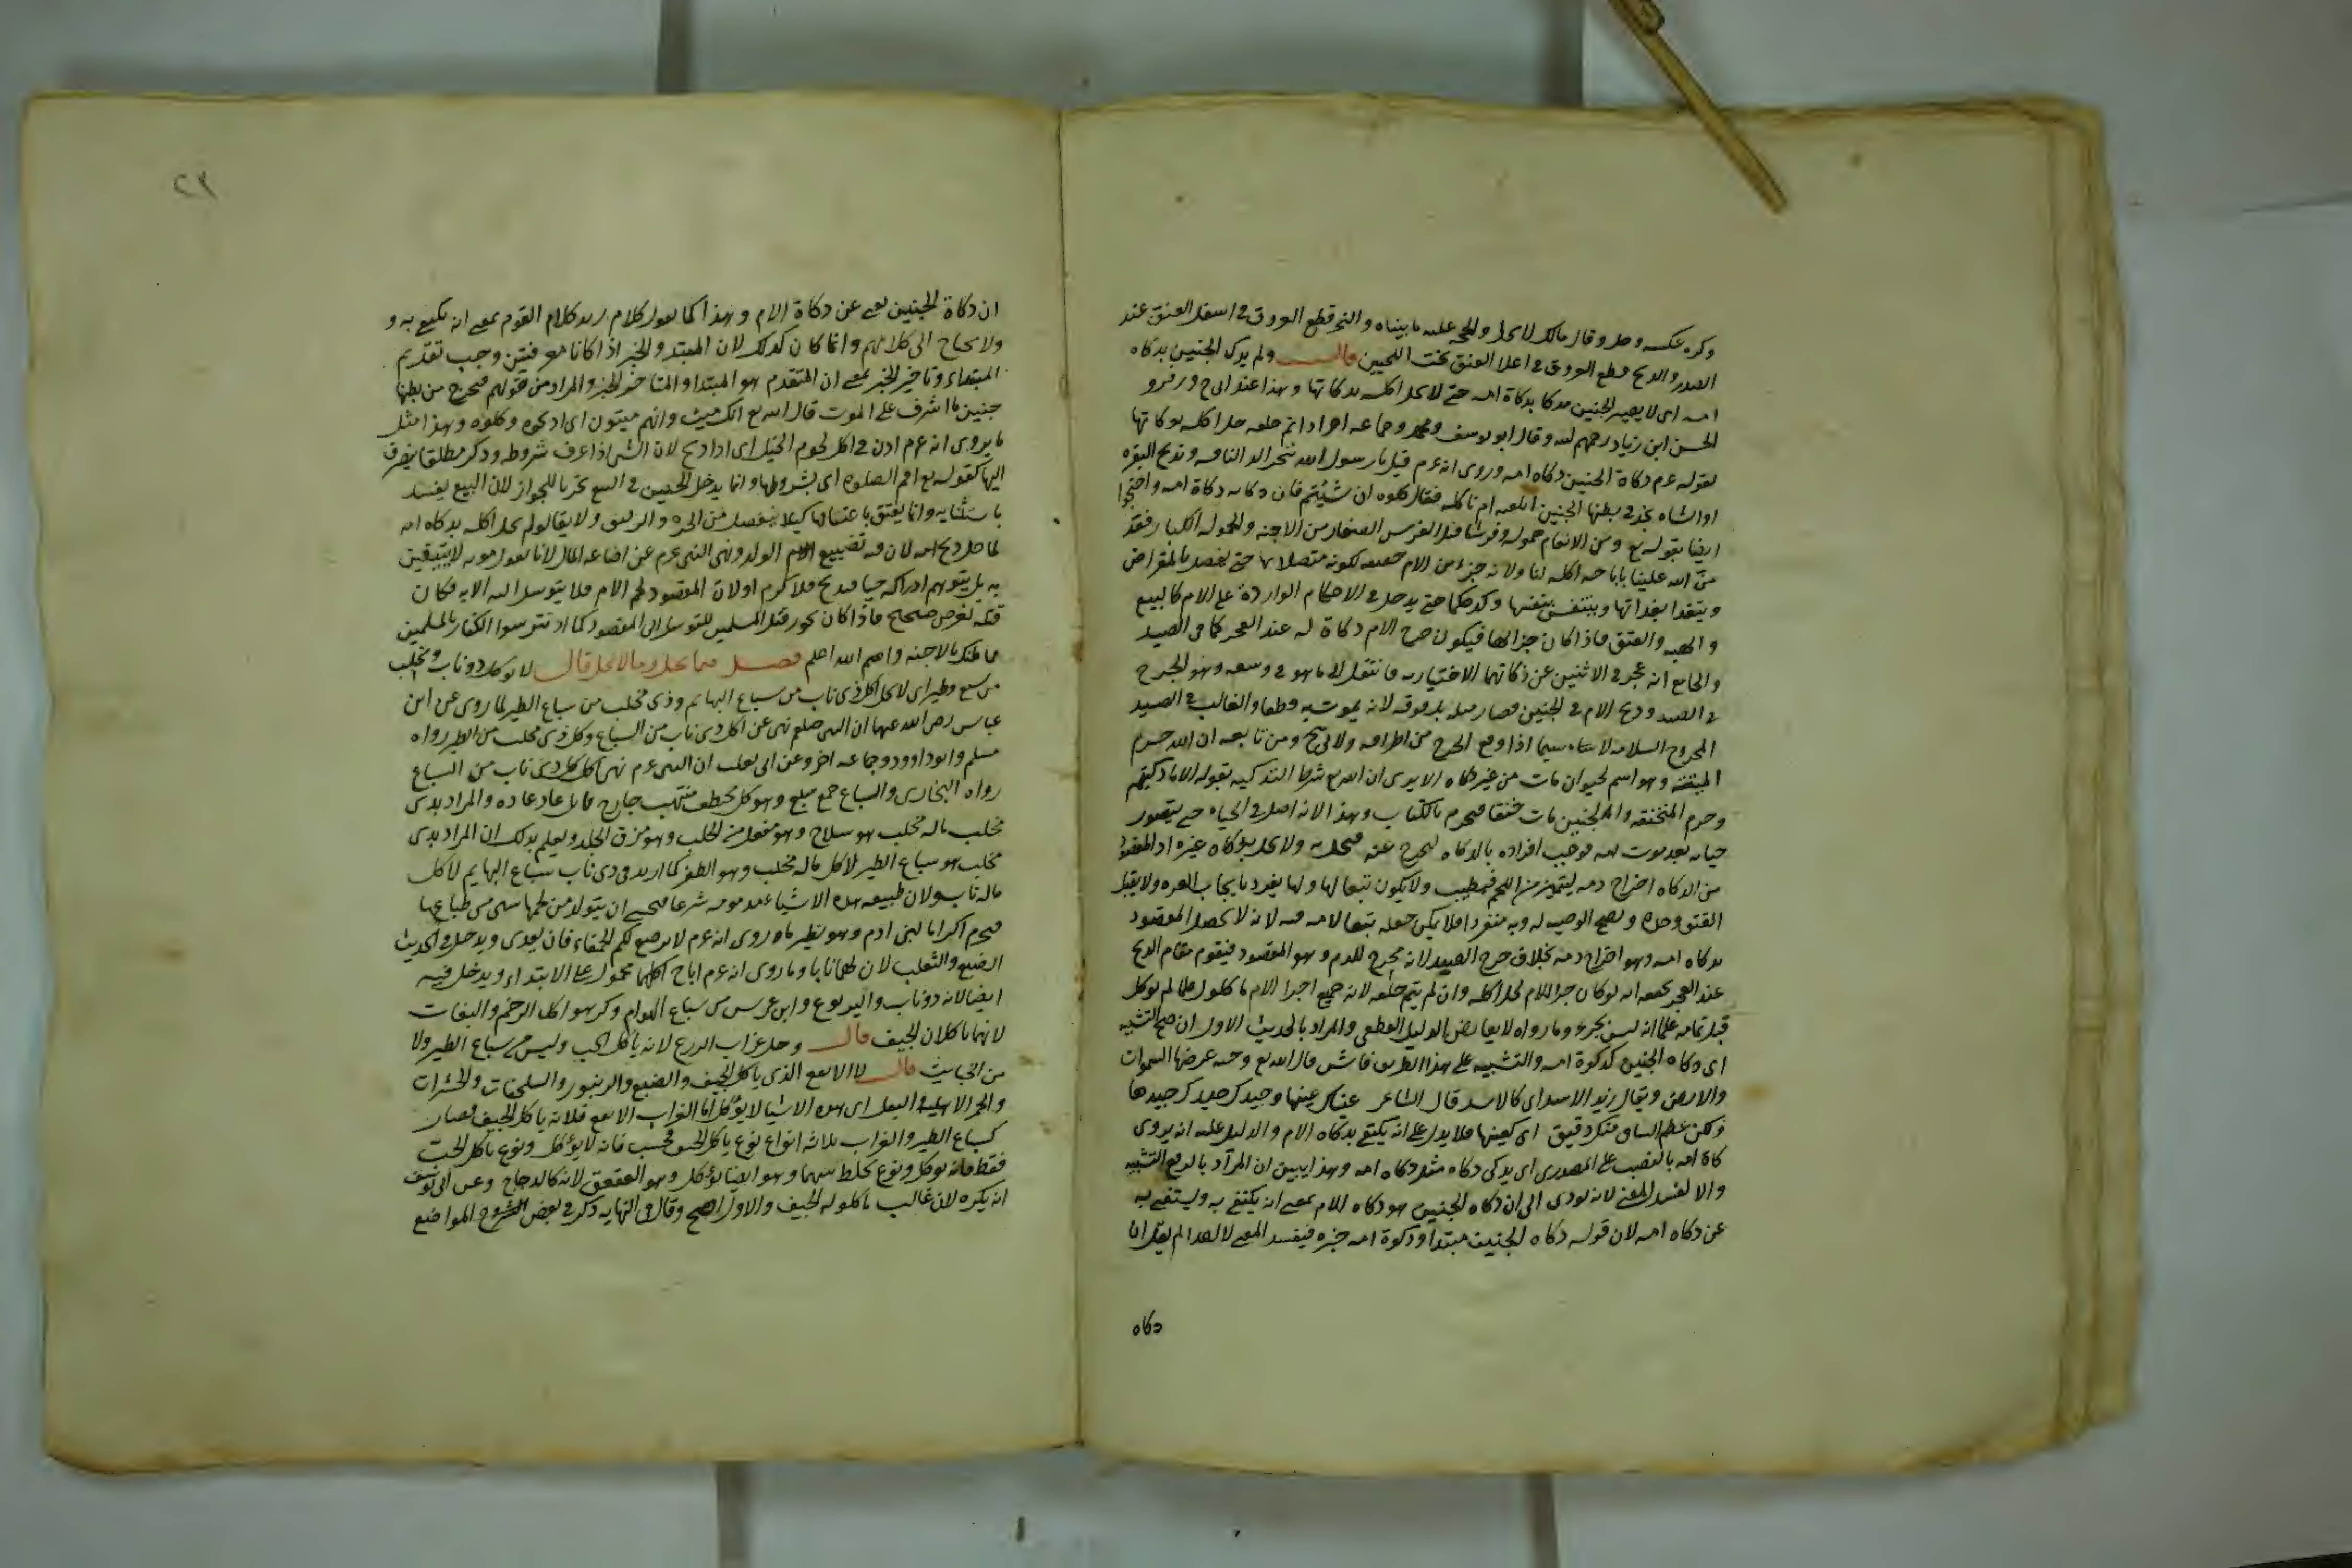 وكره عكسه وحل وقال مالك لا يحل والحجة عليه ما بيناه والنحر قطع العروق في اسفل العنق عند
الصدر والذبح قطع العروق في اعلا العنق تحت اللحيين قال ولم يذك الجنين بذكاة
امه اي لا يصير الجنين مذكا بذكاة امه حتى لا يحل اكله بذكاتها وهذا عند ابي ح وزفر و
الحسن ابن زياد رحمهم الله وقال ابو يوسف ومحمد وجماعة اخر اذا تم خلقه حل اكله بذكاتها
لقوله عم ذكاة الجنين ذكاة امه وروى انه عم قيل يا رسول الله ننحر الناقة ونذبح البقرة
او الشاة نجد في بطنها الجنين انلقيه ام ناكله فقال كلوه ان شئتم فان ذكاته ذكاة امه واحتجوا
ايضا بقوله تع ومن الانعام حمولة وفرشا قيل الفرش الصغار من الاجنة والحمولة الكبار فقد
من الله علينا باباحة اكله لنا ولانه جزء من الام حقيقة لكونه متصلا بها حتى يفصل بالمقراض
ويتغدا بغدائها ويتنفس بنفسها وكذا حكما حتى يدخل في الاحكام الواردة على الام كالبيع
والهبة والعتق فاذا كان جزا لها فيكون جرح الام ذكاة له عند العجز كما في الصيد
والجامع انه عجز في الاثنين عن ذكاتهما الاختيارية فانتقل الى ما هو في وسعه وهو الجرح
في الصيد وذبح الام في الجنين فصار مثله بل فوقه لانه يموت به قطعا والغالب في الصيد
المجروح السلامة لا سيما اذا وقع الجرح من اطرافه ولابي ح ومن تابعه ان الله حرم
الميتة وهو اسم لحيوان مات من غير ذكاة الا يرى ان الله تع شرط التذكية بقوله الا ما ذكيتم
وحرم المنخنقة والجنين مات خنقا فيحرم بالكتاب وهذا لانه اصل في الحياة حتى يتصور
حياته بعد موت امه فوجب افراده بالذكاة ليخرج عنه ولا يحل بذكاة غيره اذ المقصود
من الذكاة اخراج دمه ليتميز من اللحم فيطيب ولا يكون تبعا لها ولها يفرد بايجاب الغرة ولا يقبل
العتق وحده وتصح الوصية له وبه منفردا فلا يمكن جعله تبعا لامه فيه لانه لا يحصل المقصود
بذكاة امه وهو اخراج دمه بخلاف جرح الصيد لانه مخرج للدم وهو المقصود فيقوم مقام الذبح
عند العجز يحققه انه لو كان جزا للام لحل اكله وان لم يتم خلقه لانه جميع اجزا الام ماكول فلما لم يوكل
قبل تمامه علمنا انه ليس بجزء وما رواه لا يعارض الدليل القطعي والمراد بالحديث الاول ان صح التشبيه
اي ذكاة الجنين كذكوة امه والتشبيه على هذا الطريق فاش قال الله تع وجنة عرضها السموات
والارض ويقال زيد الاسد اي كالاسد قال الشاعر عيناك عيناها وجيدك جيدها
ولكن عظم الساق منك دقيق اي كعينها فلا يدل على انه يكتفي بذكاة الام والدليل عليه انه يروى
ذكاة امه بالنصب على المصدر اي يذكى ذكاة مثل ذكاة امه وهذا يبين ان المراد بالرفع التشبيه
والا لفسد المعنى لانه يودي الى ان ذكاة الجنين هو ذكاة الام بمعنى انه يكتفي به ويستغنى به
عن ذكاة امه لان قوله ذكاة الجنين مبتدأ وذكوة امه خبره فيفسد المعنى
ذكاة
٢٣
ان ذكاة الجنين تغني عن ذكاة الام وهذا كما تقول كلام زيد كلام القوم بمعنى انه يكتفي به و
ولا يحتاج الى كلامهم وانما كان كذلك لان المبتدا والخبر اذا كانا معرفتين وجب تقديم
المبتداء وتاخير الخبر بمعنى ان المتقدم هو المبتدا والمتاخر الخبر والمراد من قولهم فيخرج من بطنها
جنين ما اشرف على الموت قال الله تع انك ميت وانهم ميتون اي اذبحوه وكلوه وهذا مثل
ما يروى انه عم اذن في اكل لحوم الخيل اي اذا ذبح لان الشئ اذا عرف شروطه وذكر مطلقا ينصرف
اليها كقوله تع اقم الصلوة اي بشروطها وانما يدخل الجنين في البيع تحريا للجواز لان البيع يفسد
باستثنائه وانما يعتق باعتاقها كيلا ينفصل من الحرة ولد رقيق ولا يقال لو لم يحل اكله بذكاة امه
لما حل ذبح امه لان فيه تضييع الولد ونهى النبي عم عن اضاعة المال لانا نقول موته لا يتيقن
به بل يتوهم ادراكه حيا فيذبح فلا يحرم او لان المقصود لحم الام فلا يتوسل اليه الا به فكان
قتله لغرض صحيح فاذا كان يجوز قتل المسلمين للتوسل الى المقصود كما اذ تترسوا الكفار بالمسلمين
فما ظنك بالاجنة والله اعلم فصل فيما يحل وما لا يحل قال لا يوكل ذو ناب ومخلب
من سبع وطير اي لا يحل اكل ذي ناب من سباع البهايم وذي مخلب من سباع الطير لما روى عن ابن
عباس رضي الله عنهما ان النبي صلعم نهى عن اكل كل ذي ناب من السباع وكل ذي مخلب من الطير رواه
مسلم وابو داوود وجماعة اخر وعن ابي ثعلبة ان النبي عم نهى اكل كل ذي ناب من السباع
رواه البخاري والسباع جمع سبع وهو كل مختطف منتهب جارح قاتل عاد عادة والمراد بذي
مخلب ماله مخلب هو سلاح وهو مفعل من الخلب وهو مزق الجلد ويعلم بذلك ان المراد بذي
مخلب هو سباع الطير لا كل ماله مخلب وهو الظفر كما اريد في ذي ناب سباع البهايم لا كل
ماله ناب ولان طبيعة هذه الاشياء مذمومة شرعا فيخشى ان يتولد من لحمها شي من طباعها
فيحرم اكراما لبني ادم وهو نظير ما روى انه عم لا يرضع لكم الحمقاء فان يعدي ويدخل في الحديث
الضبع والثعلب لان لهما نابا وما روى انه عم اباح اكلهما محمول على الابتداء ويدخل فيه
ايضا لانه ذو ناب واليربوع وابن عرس من سباع الهوام وكرهوا اكل الرخم والبغاث
لانهما ياكلان الجيف قال وحل غراب الزرع لانه ياكل الحب وليس من سباع الطير ولا
من الخبايث قال لا الابقع الذي ياكل الجيف والضبع والزنبور والسلحفات والحشرات
والحمر الاهلية البغل اي هذه الاشيا لا يؤكل اما الغراب الابقع فلانه ياكل الجيف فصار
كسباع الطير والغراب ثلاثة انواع نوع ياكل الجيف فحسب فانه لا يؤكل ونوع ياكل الحب
فقط فانه يوكل ونوع يخلط بينهما وهو ايضا يؤكل وهو العقعق لانه كالدجاج وعن ابي يوسف
انه يكره لان غالب ماكوله الجيف والاول اصح وقال في النهاية ذكر في بعض المواضع